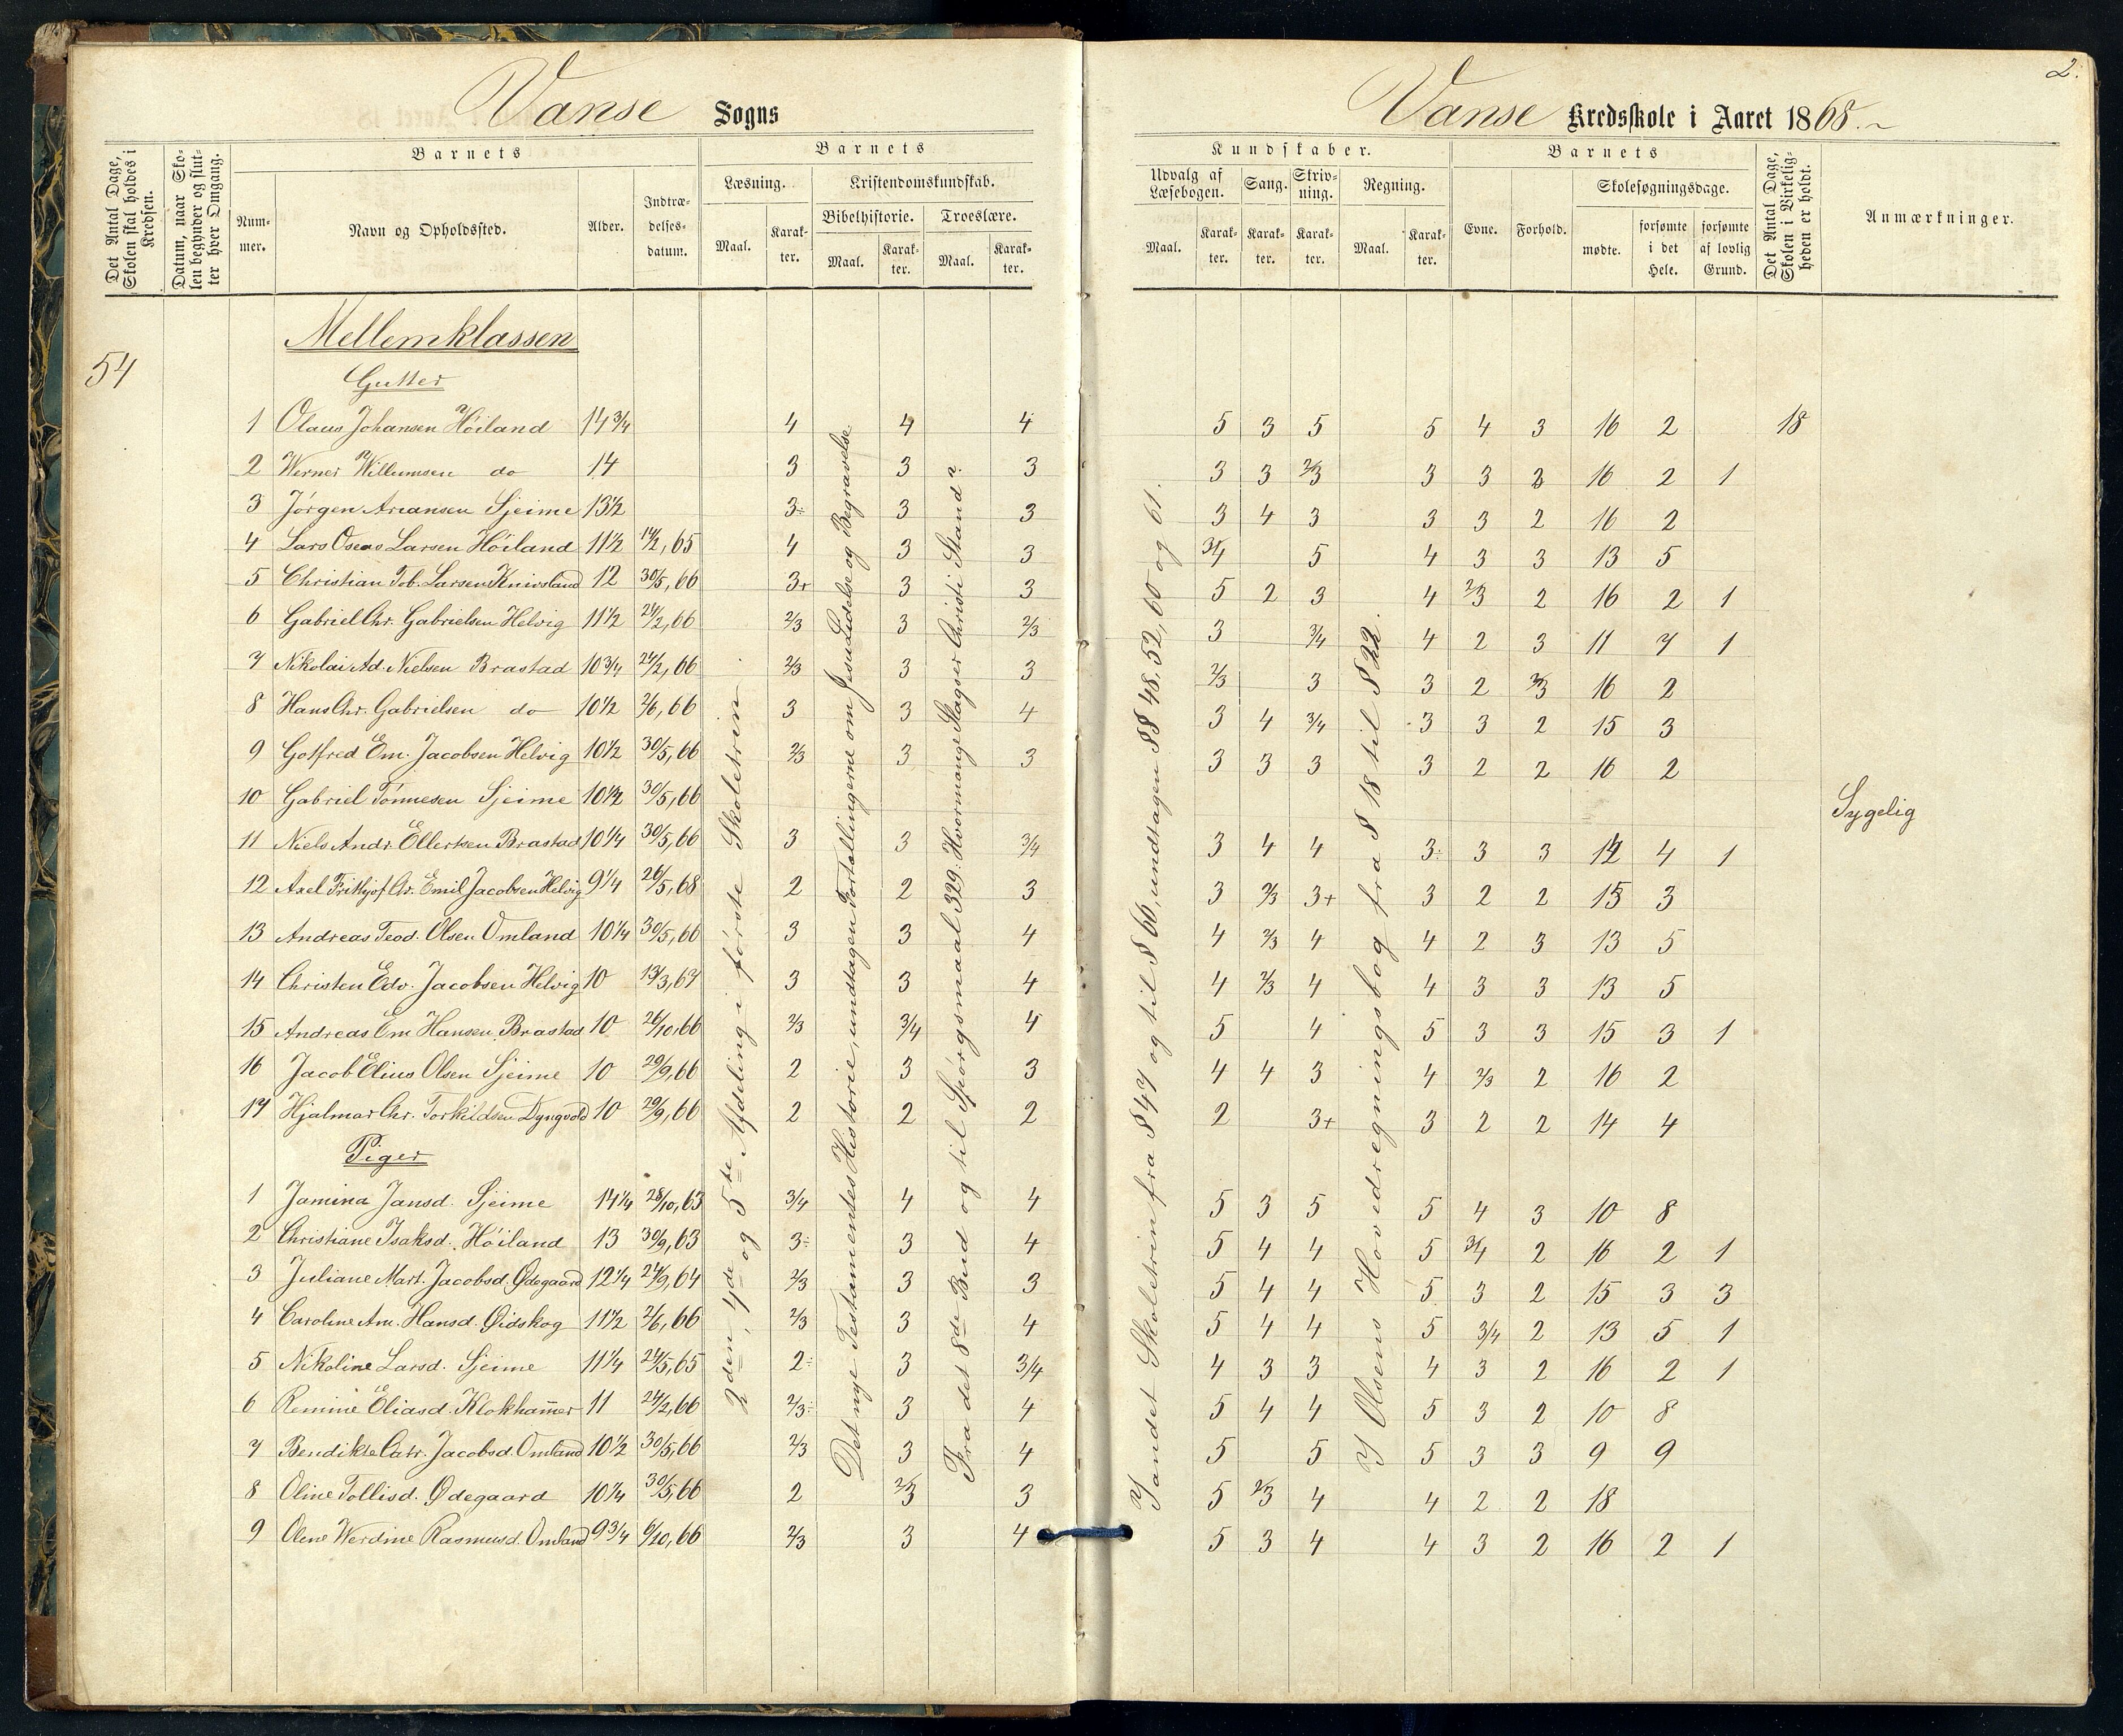 2.
Vanse Sogns
Vanse Kredsskole i Aaret 1868.
Det Antal Dage, Skolen skal holdes i Kredsen.
Datum, naar Skolen begynder og slutter hver Omgang.
Barnets
Nummer.
Navn og Opholdssted.
Alder.
Indtrædelsesdatum.
Barnets
Læsning.
Maal.
Karakter.
Kristendomskundskab.
Bibelhistorie.
Maal.
Karakter.
Troeslære.
Maal.
Karakter.
Kundskaber.
Udvalg af Læsebogen.
Maal.
Karakter.
Sang.
Karakter.
Skrivning.
Karakter.
Regning.
Maal.
Karakter.
Barnets
Evne.
Forhold.
Skolesøgningsdage.
mødte.
forsømte i det Hele.
forsømte af lovlig Grund.
Det Antal Dage, Skolen i Virkeligheden er holdt.
Anmærkninger.
Mellemklassen
54
Gutter
1 Olaus Johansen Høiland 14 3/4 4 4 4 5 3 5 5 4 3 16 2 18
2 Werner Willumsen do 14 3 3 3 3 3 2/3 3 3 3 16 2 1
3 Jørgen Ariansen Sjeime 13 1/2 3÷ 3 3 3 4 3 3 3 2 16 2
4 Lars Oseas Larsen Høiland 11 1/2 14/2, 65 4 3 3 3/4 5 4 3 3 13 5
5 Christian Tob. Larsen Knivsland 12 30/5, 66 3+ 3 3 5 2 3 4 2/3 2 16 2 1
6 Gabriel Chr. Gabrielsen Helvig 11 1/2 24/2, 66 2/3 3 2/3 3 3/4 4 2 3 11 7 1
7 Nikolai Ad. Nielsen Brastad 10 3/4 24/2, 66 2/3 3 3 2/3 3 3 2 2/3 16 2
8 Hans Chr. Gabrielsen do 10 1/2 2/6, 66 3 3 4 3 4 3/4 3 3 2 15 3
9 Gotfred Em. Jacobsen Helvig 10 1/2 30/5, 66 2/3 3 3 3 3 3 3 2 2 16 2
10 Gabriel Tønnesen Sjeime 10 1/2 30/5, 66 Sygelig
11 Niels Andr. Ellertsen Brastad 10 1/4 30/5, 66 3 3 3/4 3 4 4 3÷ 3 3 14 4 1
12 Axel Frithjof Chr. Emil Jacobsen Helvig 9 1/4 26/5, 68 2 2 3 3 2/3 3+ 3 2 2 15 3
13 Andreas Teod. Olsen Omland 10 1/4 30/5, 66 3 3 4 4 2/3 4 4 2 3 13 5
14 Christen Edv. Jacobsen Helvig 10 13/3, 67 3 3 4 4 2/3 4 4 3 3 13 5
15 Andreas Em. Hansen Brastad 10 26/10, 66 2/3 3/4 4 5 4 5 3 3 15 3 1
16 Jacob Elius Olsen Sjeime 10 29/9, 66 2 3 3 4 4 3 4 2/3 2 16 2
17 Hjalmar Chr. Torkildsen Dyngvold 10 29/9, 66 2 2 2 2 3+ 3 2 2 14 4
Piger
1 Jamina Jansd. Sjeime 14 1/4 28/10, 63 3/4 4 4 5 3 5 5 4 3 10 8
2 Christiane Isaksd. Høiland 13 30/9, 63 3÷ 3 4 5 4 4 5 3/4 2 16 2 1
3 Juliane Mart. Jacobsd. Ødegaard 12 1/4 27/9, 64 2/3 3 3 5 4 4 5 3 2 15 3 3
4 Caroline Am. Hansd. Øidskog 11 1/2 2/6, 66 2/3 3 4 5 4 4 5 3/4 2 13 5 1
5 Nikoline Larsd. Sjeime 11 1/4 24/5, 65 2÷ 3 3/4 4 3 3 4 3 2 16 2 1
6 Remine Eliasd. Klokhammer 11 24/2, 66 2/3÷ 3 4 5 4 4 5 3 2 10 8
7 Bendikte Catr. Jacobsd. Omland 10 1/2 30/5, 66 2/3 3 4 5 5 5 3 3 9 9
8 Oline Tollisd. Ødegaard 10 1/4 30/5, 66 2 2/3 3 5 2/3 4 4 2 2 18
9 Olene Werdine Rasmusd. Omland 9 3/4 6/10, 66 2/3 3 4 5 3 4 4 3 2 16 2 1
2den, 4de og 5te Afdeling i første Skoletrin.
Det nye Testamentes Historie, undtagen Fortellingerne om Jesu Lidelse og Begravelse.
Fra det 8de Bud og til Spørgsmaal 329: Hvormange Slags er Christi Stand?
I andet Skoletrin fra § 47 og til § 66, undtagen §§ 48, 52, 60 og 61.
I Olsens Hovedregningsbog fra § 18 til § 22.